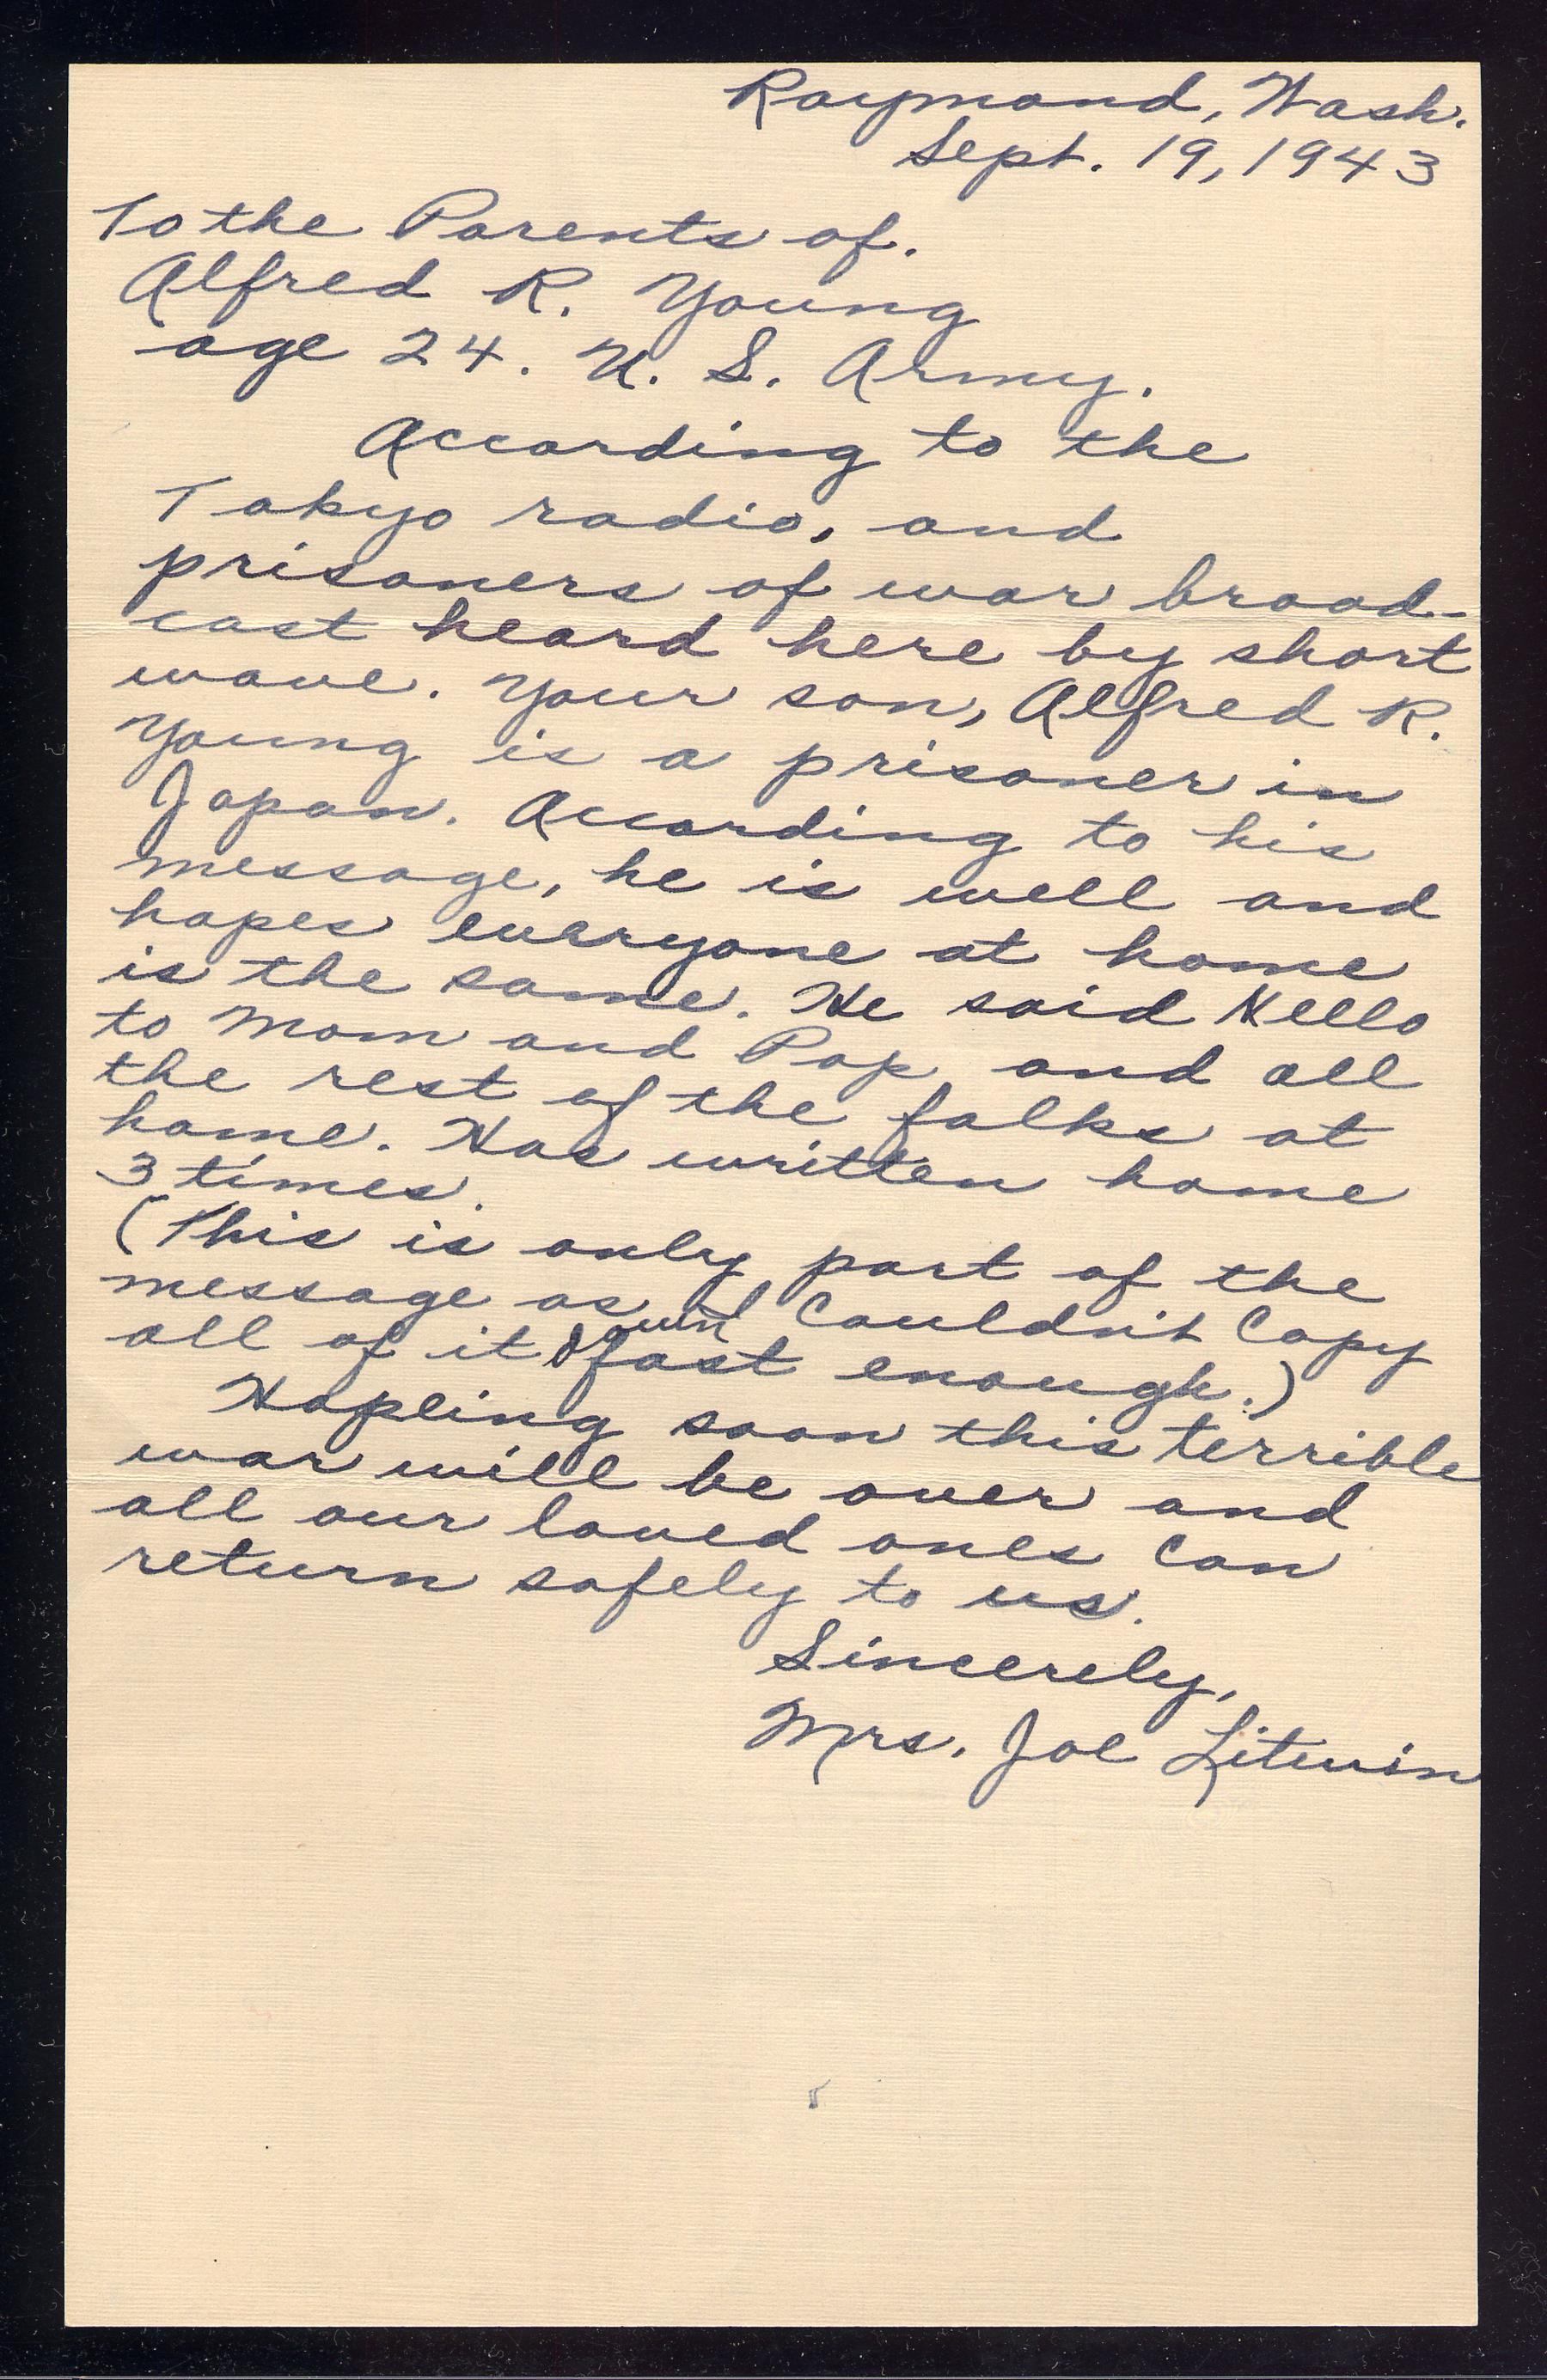 Raymond, Wash.
Sept. 19, 1943
To the Parents of.
Alfred R. Young
age 24. U. S. Army.
According to the
Tokyo radio, and
prisoners of war broad-
cast heard here by short
wave. Your son, Alfred R.
Young is a prisoner in
Japan. According to his
message, he is well and
hopes everyone at home
is the same. He said Hello
to Mom and Pop and all
the rest of the folks at
home. Has written home
3 times.
(This is only part of the
message as couldn't copy
all of it down fast enough.)
Hopeing soon this terrible
war will be over and
all our loved ones can
return safely to us.
Sincerely,
Mrs. Joe Litwin